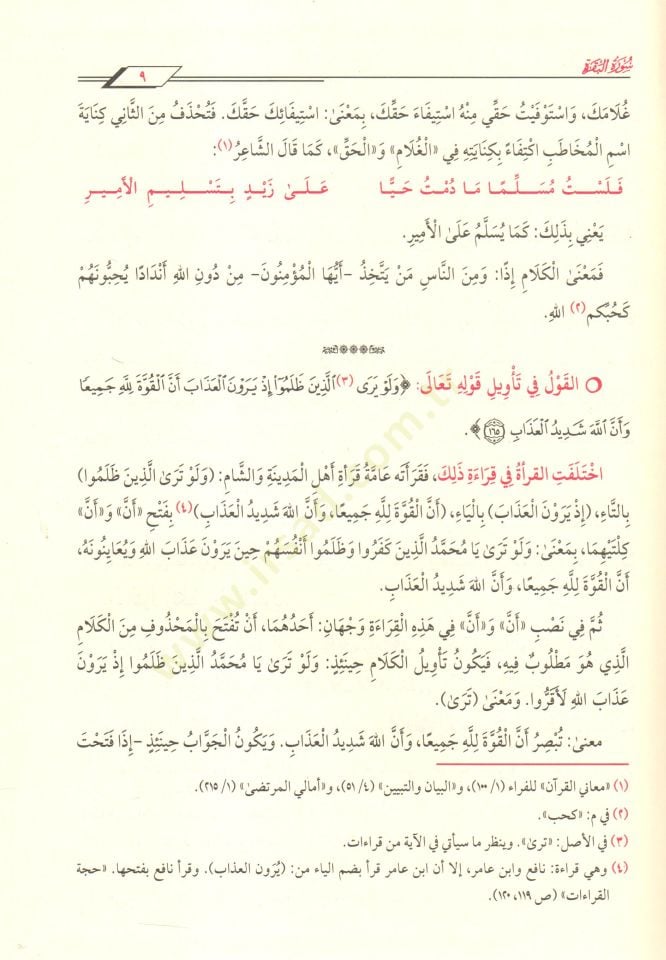 سُورَةُ البَقَرَةِ
٩
غُلَامَكَ، وَاسْتَوْفَيْتُ حَقِّي مِنْهُ اسْتِيفَاءَ حَقِّكَ، بِمَعْنَىٰ: اسْتِيفَائِكَ حَقَّكَ. فَتُحْذَفُ مِنَ الثَّانِي كِنَايَةَ
اسْمِ الْمُخَاطَبِ اكْتِفَاءً بِكِنَايَتِهِ فِي «الْغُلَامِ» وَ«الْحَقِّ»، كَمَا قَالَ الشَّاعِرُ (١):
فَلَسْتُ مُسَلِّمًا مَا دُمْتُ حَيًّا عَلَىٰ زَيْدٍ بِتَسْلِيمِ الأَمِيرِ
يَعْنِي بِذَلِكَ: كَمَا يُسَلَّمُ عَلَى الْأَمِيرِ.
فَمَعْنَىٰ الْكَلَامِ إِذًا: وَمِنَ النَّاسِ مَنْ يَتَّخِذُ -أَيُّهَا الْمُؤْمِنُونَ- مِنْ دُونِ اللهِ أَنْدَادًا يُحِبُّونَهُمْ
كَحُبِّكم (٢) اللهِ.
○ القَوْلُ فِي تَأْوِيلِ قَوْلِهِ تَعَالَى: ﴿وَلَوْ يَرَى (٣) الَّذِينَ ظَلَمُوٓا۟ إِذْ يَرَوْنَ ٱلْعَذَابَ أَنَّ ٱلْقُوَّةَ لِلَّهِ جَمِيعًا
وَأَنَّ ٱللَّهَ شَدِيدُ ٱلْعَذَابِ ١٦٥﴾.
اخْتَلَفَتِ القرأةُ فِي قِرَاءَةِ ذَلِكَ، فَقَرَأَته عَامَّةُ قَرَأَةِ أَهْلِ الْمَدِينَةِ وَالشَّامِ: (وَلَوْ تَرَىٰ الَّذِينَ ظَلَمُوا)
بِالتَّاءِ، (إِذْ يَرَوْنَ الْعَذَابَ) بِالْيَاءِ، (أَنَّ الْقُوَّةَ لِلَّهِ جَمِيعًا، وَأَنَّ اللهَ شَدِيدُ الْعَذَابِ) (٤) بِفَتْحِ «أَنَّ» وَ«أَنَّ»
كِلْتَيْهِمَا، بِمَعْنَىٰ: وَلَوْ تَرَىٰ يَا مُحَمَّدُ الَّذِينَ كَفَرُوا وَظَلَمُوا أَنْفُسَهُمْ حِينَ يَرَوْنَ عَذَابَ اللهِ وَيُعَايِنُونَهُ،
أَنَّ الْقُوَّةَ لِلَّهِ جَمِيعًا، وَأَنَّ اللهَ شَدِيدُ الْعَذَابِ.
ثُمَّ فِي نَصْبِ «أَنَّ» وَ«أَنَّ» فِي هَذِهِ الْقِرَاءَةِ وَجْهَانِ: أَحَدُهُمَا، أَنْ تُفْتَحَ بِالْمَحْذُوفِ مِنَ الْكَلَامِ
الَّذِي هُوَ مَطْلُوبٌ فِيهِ، فَيَكُونُ تَأْوِيلُ الْكَلَامِ حِينَئِذٍ: وَلَوْ تَرَىٰ يَا مُحَمَّدُ الَّذِينَ ظَلَمُوا إِذْ يَرَوْنَ
عَذَابَ اللهِ لَأَقَرُّوا. وَمَعْنَىٰ (تَرَىٰ).
معنىٰ: تُبْصِرُ أَنَّ الْقُوَّةَ لِلَّهِ جَمِيعًا، وَأَنَّ اللهَ شَدِيدُ الْعَذَابِ. وَيَكُونُ الْجَوَابُ حِينَئِذٍ -إِذَا فَتَحْتَ
(١) «معاني القرآن» للفراء (١/ ١٠٠)، و«البيان والتبيين» (٤/ ٥١)، و«أمالي المرتضىٰ» (١/ ٢١٥).
(٢) في م: «كحب».
(٣) في الأصل: «ترىٰ». وينظر ما سيأتي في الآية من قراءات.
(٤) وهي قراءة: نافع وابن عامر، إلا أن ابن عامر قرأ بضم الياء من: (يُرَون العذاب). وقرأ نافع بفتحها. «حجة
القراءات» (ص ١١٩، ١٢٠).